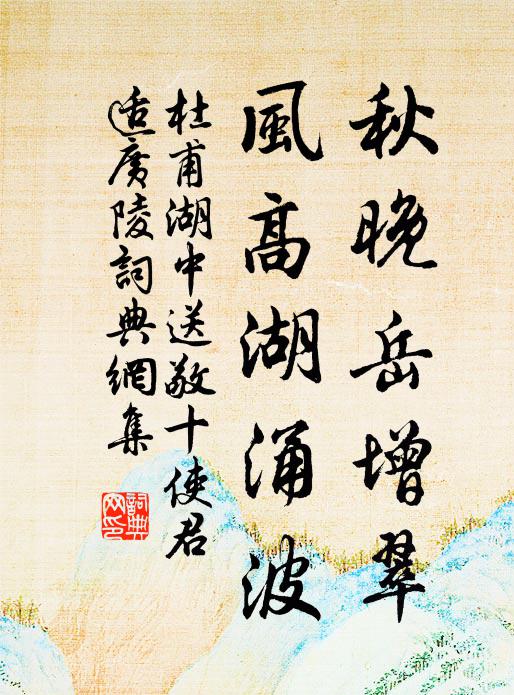 秋晚岳增翠
風高湖涌波
杜甫湖中送敬十使君
适廣陵詞典網集
詞典
网印